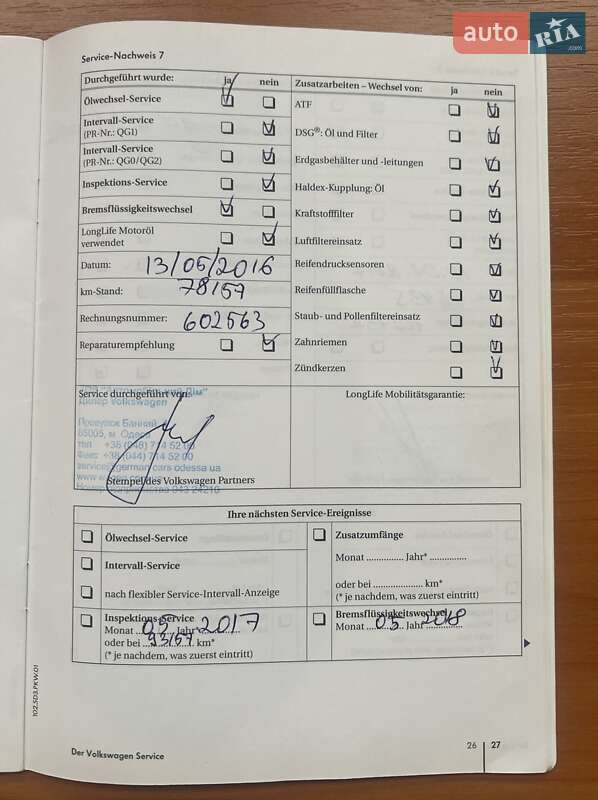 auto RIA.com
Service-Nachweis 7
Durchgeführt wurde: ja nein
Ölwechsel-Service
Intervall-Service
(PR-Nr.: QG1)
Intervall-Service
(PR-Nr.: QG0/QG2)
Inspektions-Service
Bremsflüssigkeitswechsel
LongLife Motoröl
verwendet
Datum: 13/05/2016
km-Stand: 78157
Rechnungsnummer: 602563
Reparaturempfehlung
Zusatzarbeiten – Wechsel von: ja nein
ATF
DSG®: Öl und Filter
Erdgasbehälter und -leitungen
Haldex-Kupplung: Öl
Kraftstofffilter
Luftfiltereinsatz
Reifendrucksensoren
Reifenfüllflasche
Staub- und Pollenfiltereinsatz
Zahnriemen
Zündkerzen
Service durchgeführt von:
Дилер Volkswagen
Провулок Банний
65005, м. Одеса
тел. +38 (048) 714 52 00
Факс +38 (044) 714 52 00
service@german cars odessa ua
Stempel des Volkswagen Partners
LongLife Mobilitätsgarantie:
Ihre nächsten Service-Ereignisse
Ölwechsel-Service
Intervall-Service
nach flexibler Service-Intervall-Anzeige
Zusatzumfänge
Monat ............... Jahr* ...............
oder bei ..................... km*
(* je nachdem, was zuerst eintritt)
Inspektions-Service
Monat 05 Jahr 2017
oder bei 93157 km*
(* je nachdem, was zuerst eintritt)
Bremsflüssigkeitswechsel
Monat 05 Jahr 2018
102.5D3.PKW.01
Der Volkswagen Service
26 27